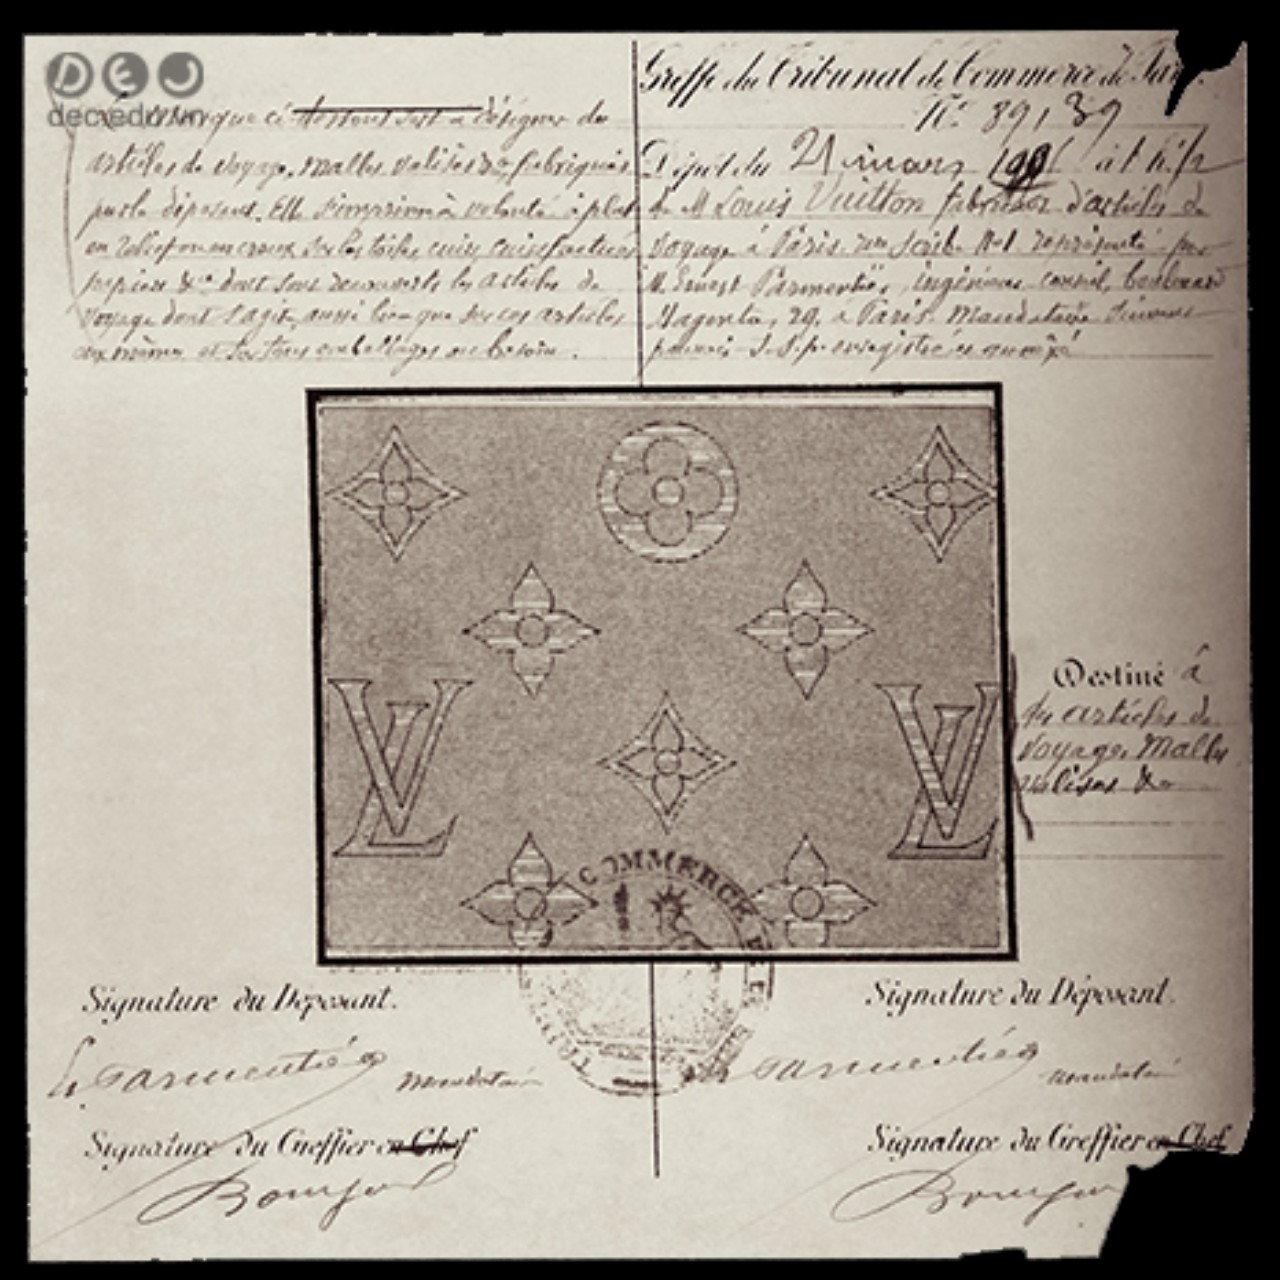 DEJ
decredu.vn
Greffe du Tribunal de Commerce de Paris.
N° 39139
Dépôt du 21 mars à 1 h 1/2
de M Louis Vuitton fabricant d'articles de
voyage à Paris. rue Scribe N°1 représenté par
M. Ernest Parmentier, ingénieur conseil, boulevard
Magenta, 29, à Paris. Mandataire
pouvoir S.S.p. enregistré et annexé
La marque ci sert à désigner des
articles de voyage, malles valises &a fabriqués
par le déposant. Elle s'imprime à volonté à plat
en relief ou en creux sur les toiles cuirs cuirs factices
papiers &a dont sont recouverts les articles de
voyage dont s'agit, aussi bien que sur ces articles
eux mêmes et sur tous emballages au besoin.
LV LV
Destiné à
des articles de
voyage. Malles
valises &a
COMMERCE
Signature du Déposant. Signature du Déposant.
E. Parmentier mandataire Parmentier mandataire
Signature du Greffier en Chef Signature du Greffier en Chef